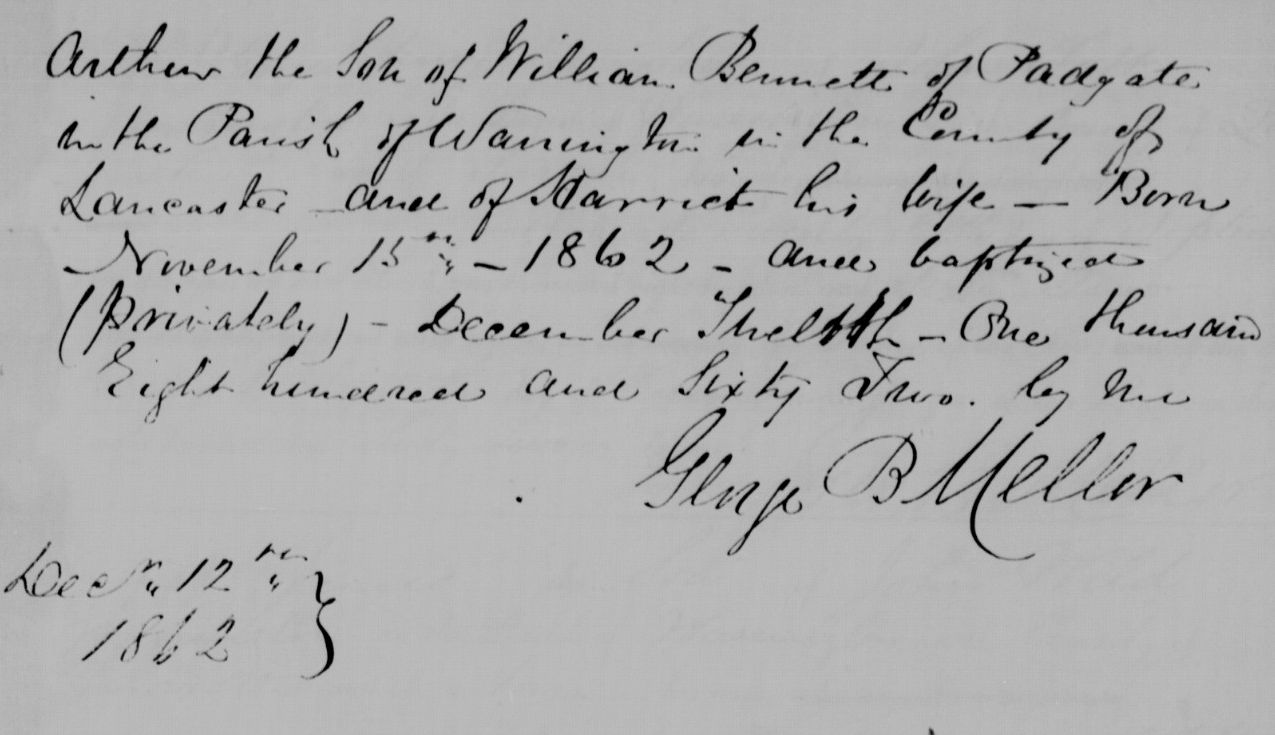 Arthur the Son of William Bennett of Padgate
in the Parish of Warrington in the County of
Lancaster and of Harriet his wife — Born
November 15th — 1862 — and baptized
(privately) — December Twelfth — One thousand
Eight hundred and Sixty Two. by me
George B Mellor
Decr. 12th
1862